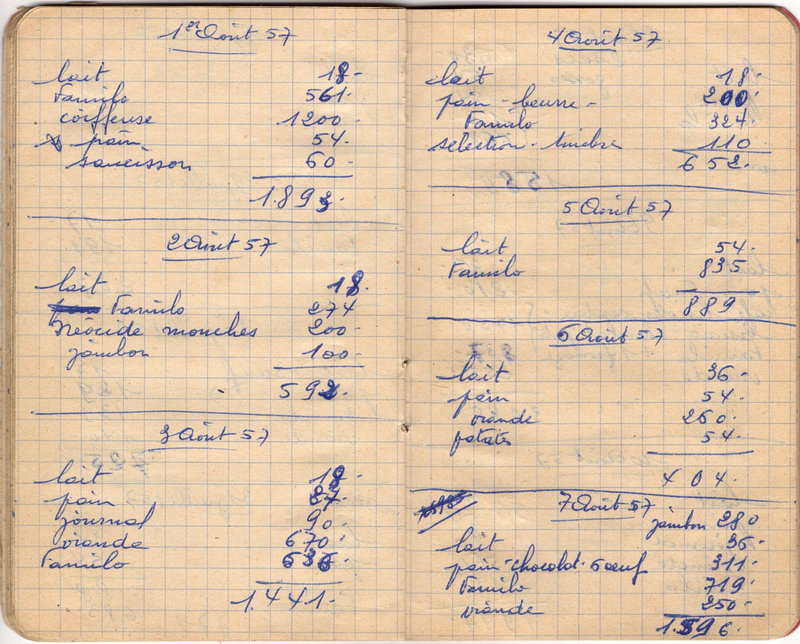 1er Août 57
lait 18.
Familo 561.
coiffeuse 1200.
pain 54.
saucisson 60.
1.893.
2 Août 57
lait 18.
Familo 274
Néocide mouches 200.
jambon 100.
592.
3 Août 57
lait 18.
pain 27.
journal 90.
viande 670.
Familo 636.
1.441.
4 Août 57
lait 18.
pain - beurre - 200.
Familo 324.
selection - timbre 110
652.
5 Août 57
lait 54.
Familo 835
889
6 Août 57
lait 36.
pain 54.
viande 260.
patates 54.
404.
7 Août 57
jambon 280
lait 36.
pain - chocolat - 6 oeuf 311.
Familo 719.
viande 250.
1.596.